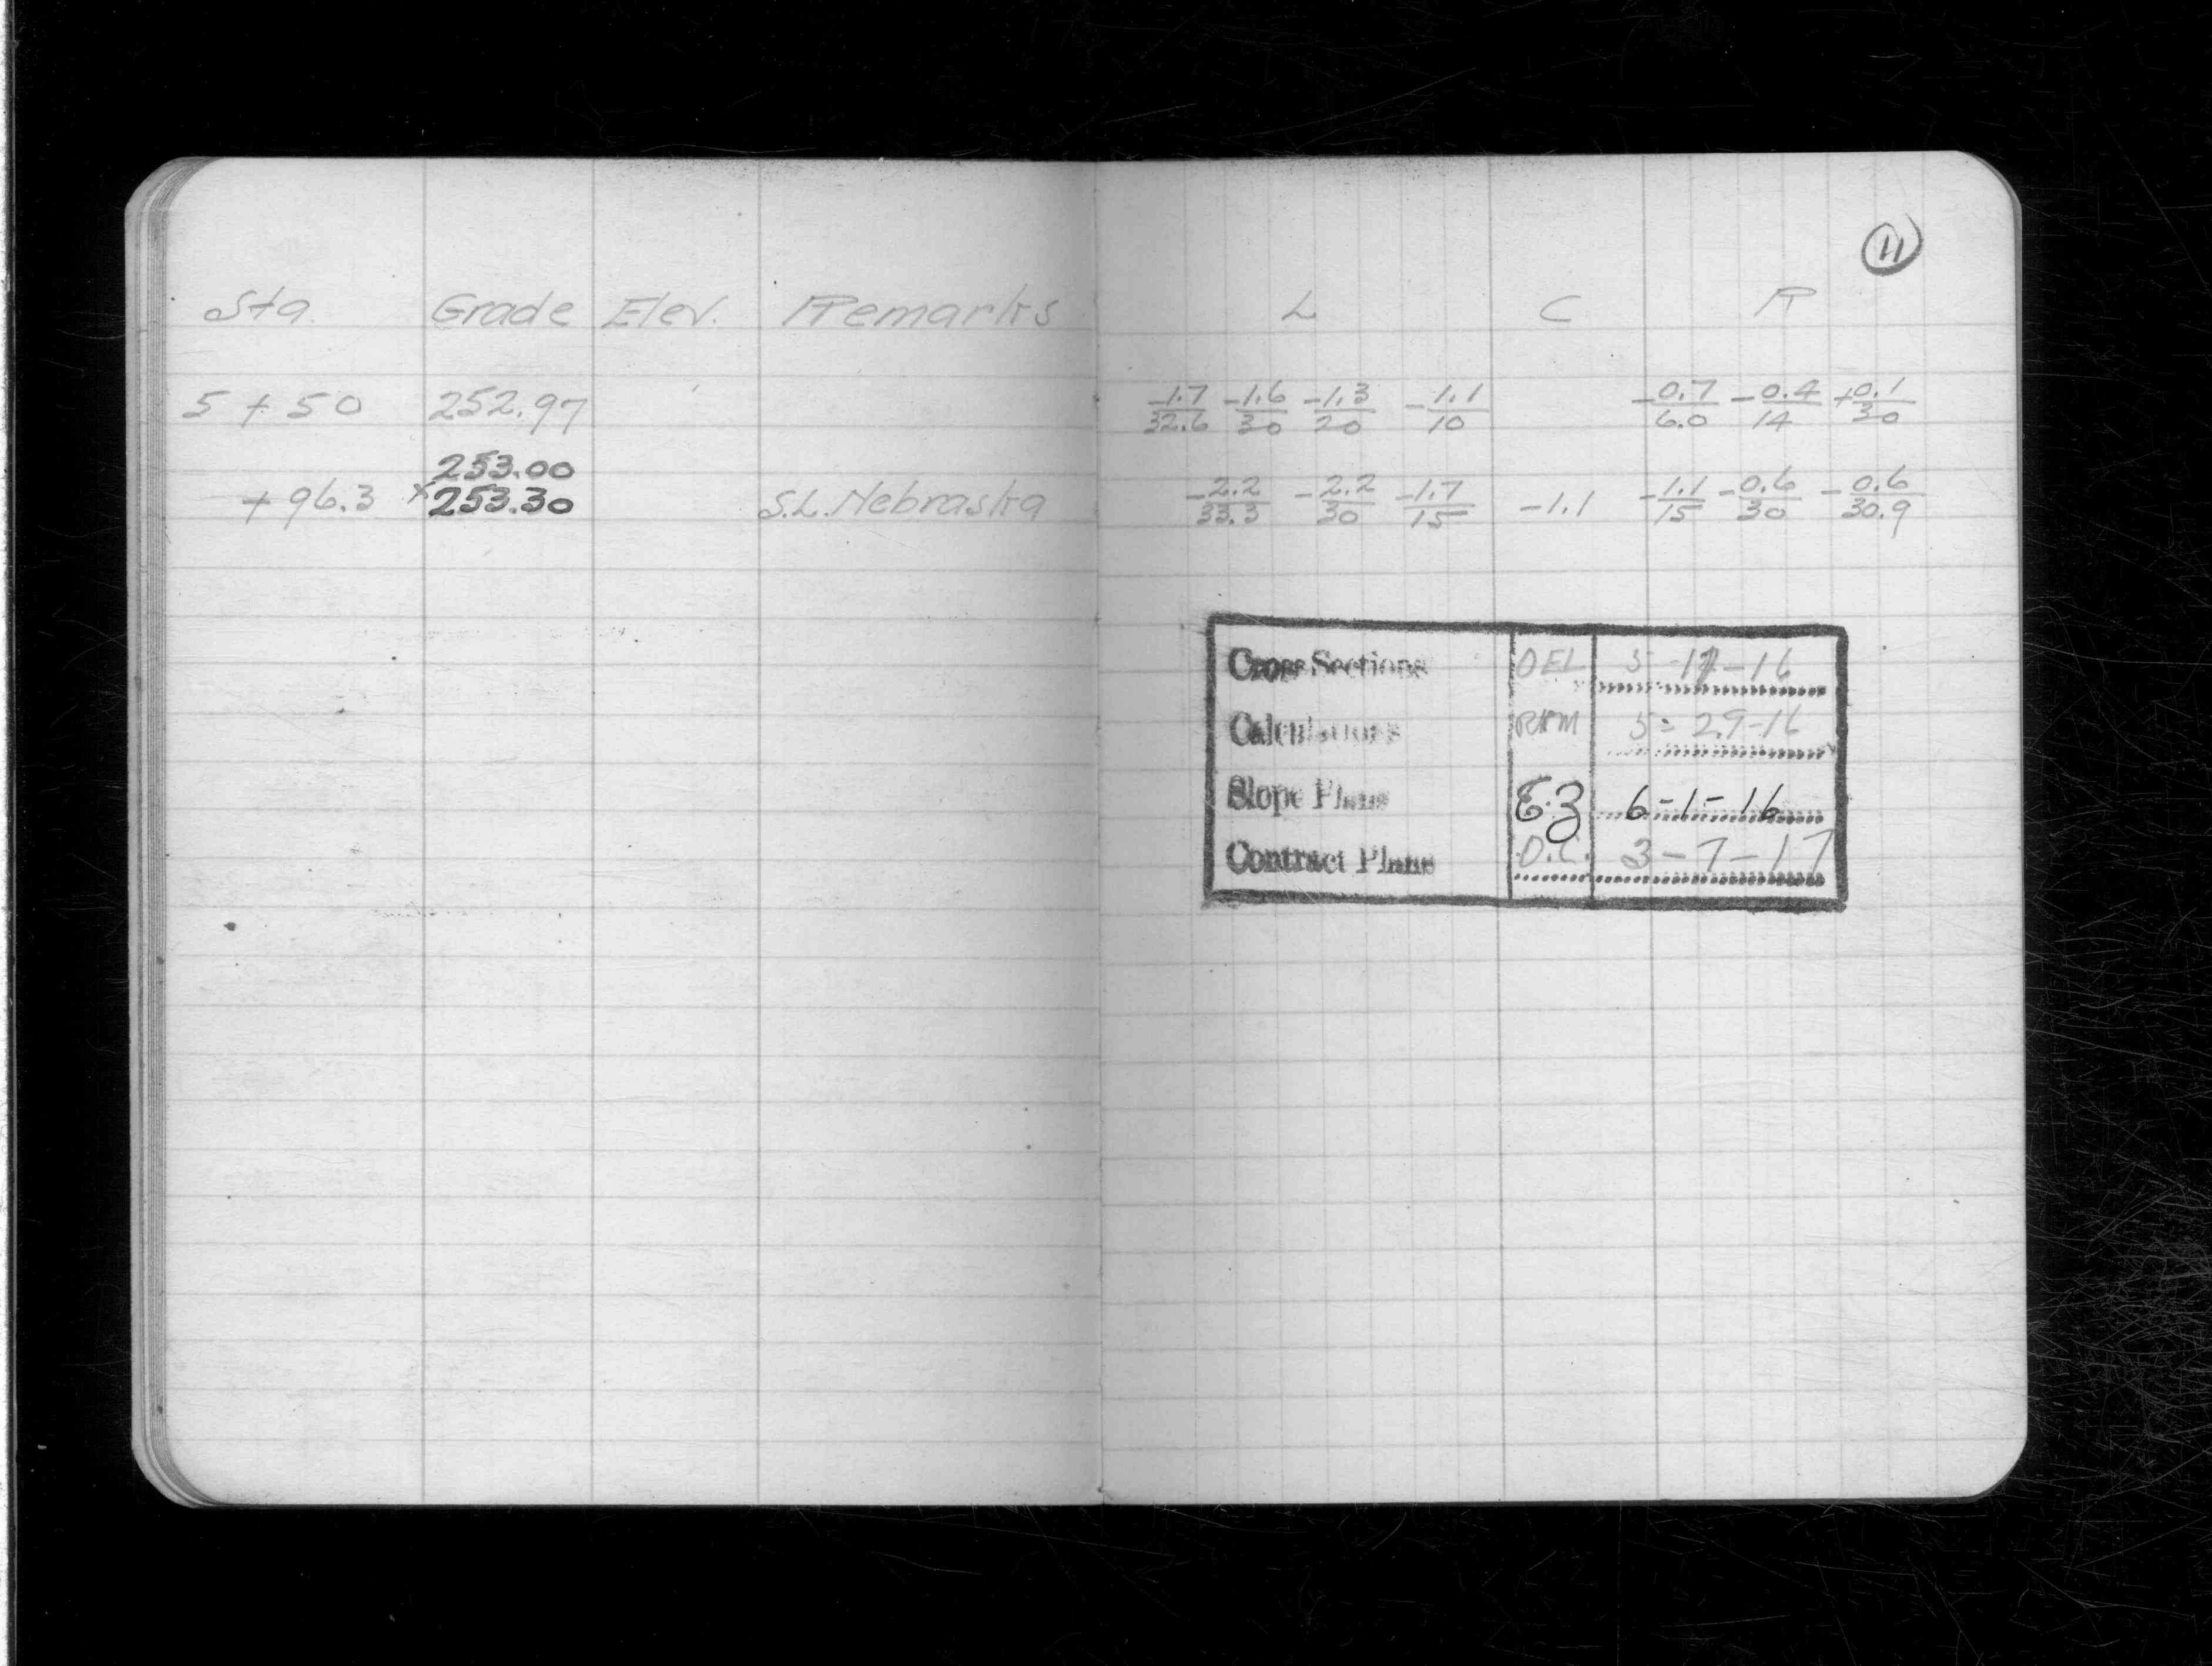 11
Sta. Grade Elev. Remarks L C R
5+50 252.97 -1.7/32.6 -1.6/30 -1.3/20 -1.1/10 -0.7/6.0 -0.4/14 +0.1/30
253.00
+96.3 x253.30 S.L. Nebraska -2.2/33.3 -2.2/30 -1.7/15 -1.1 -1.1/15 -0.6/30 -0.6/30.9
Cross Sections 5-17-16
Calculations 5-29-16
Slope Plans 6-1-16
Contract Plans D.C. 3-7-17